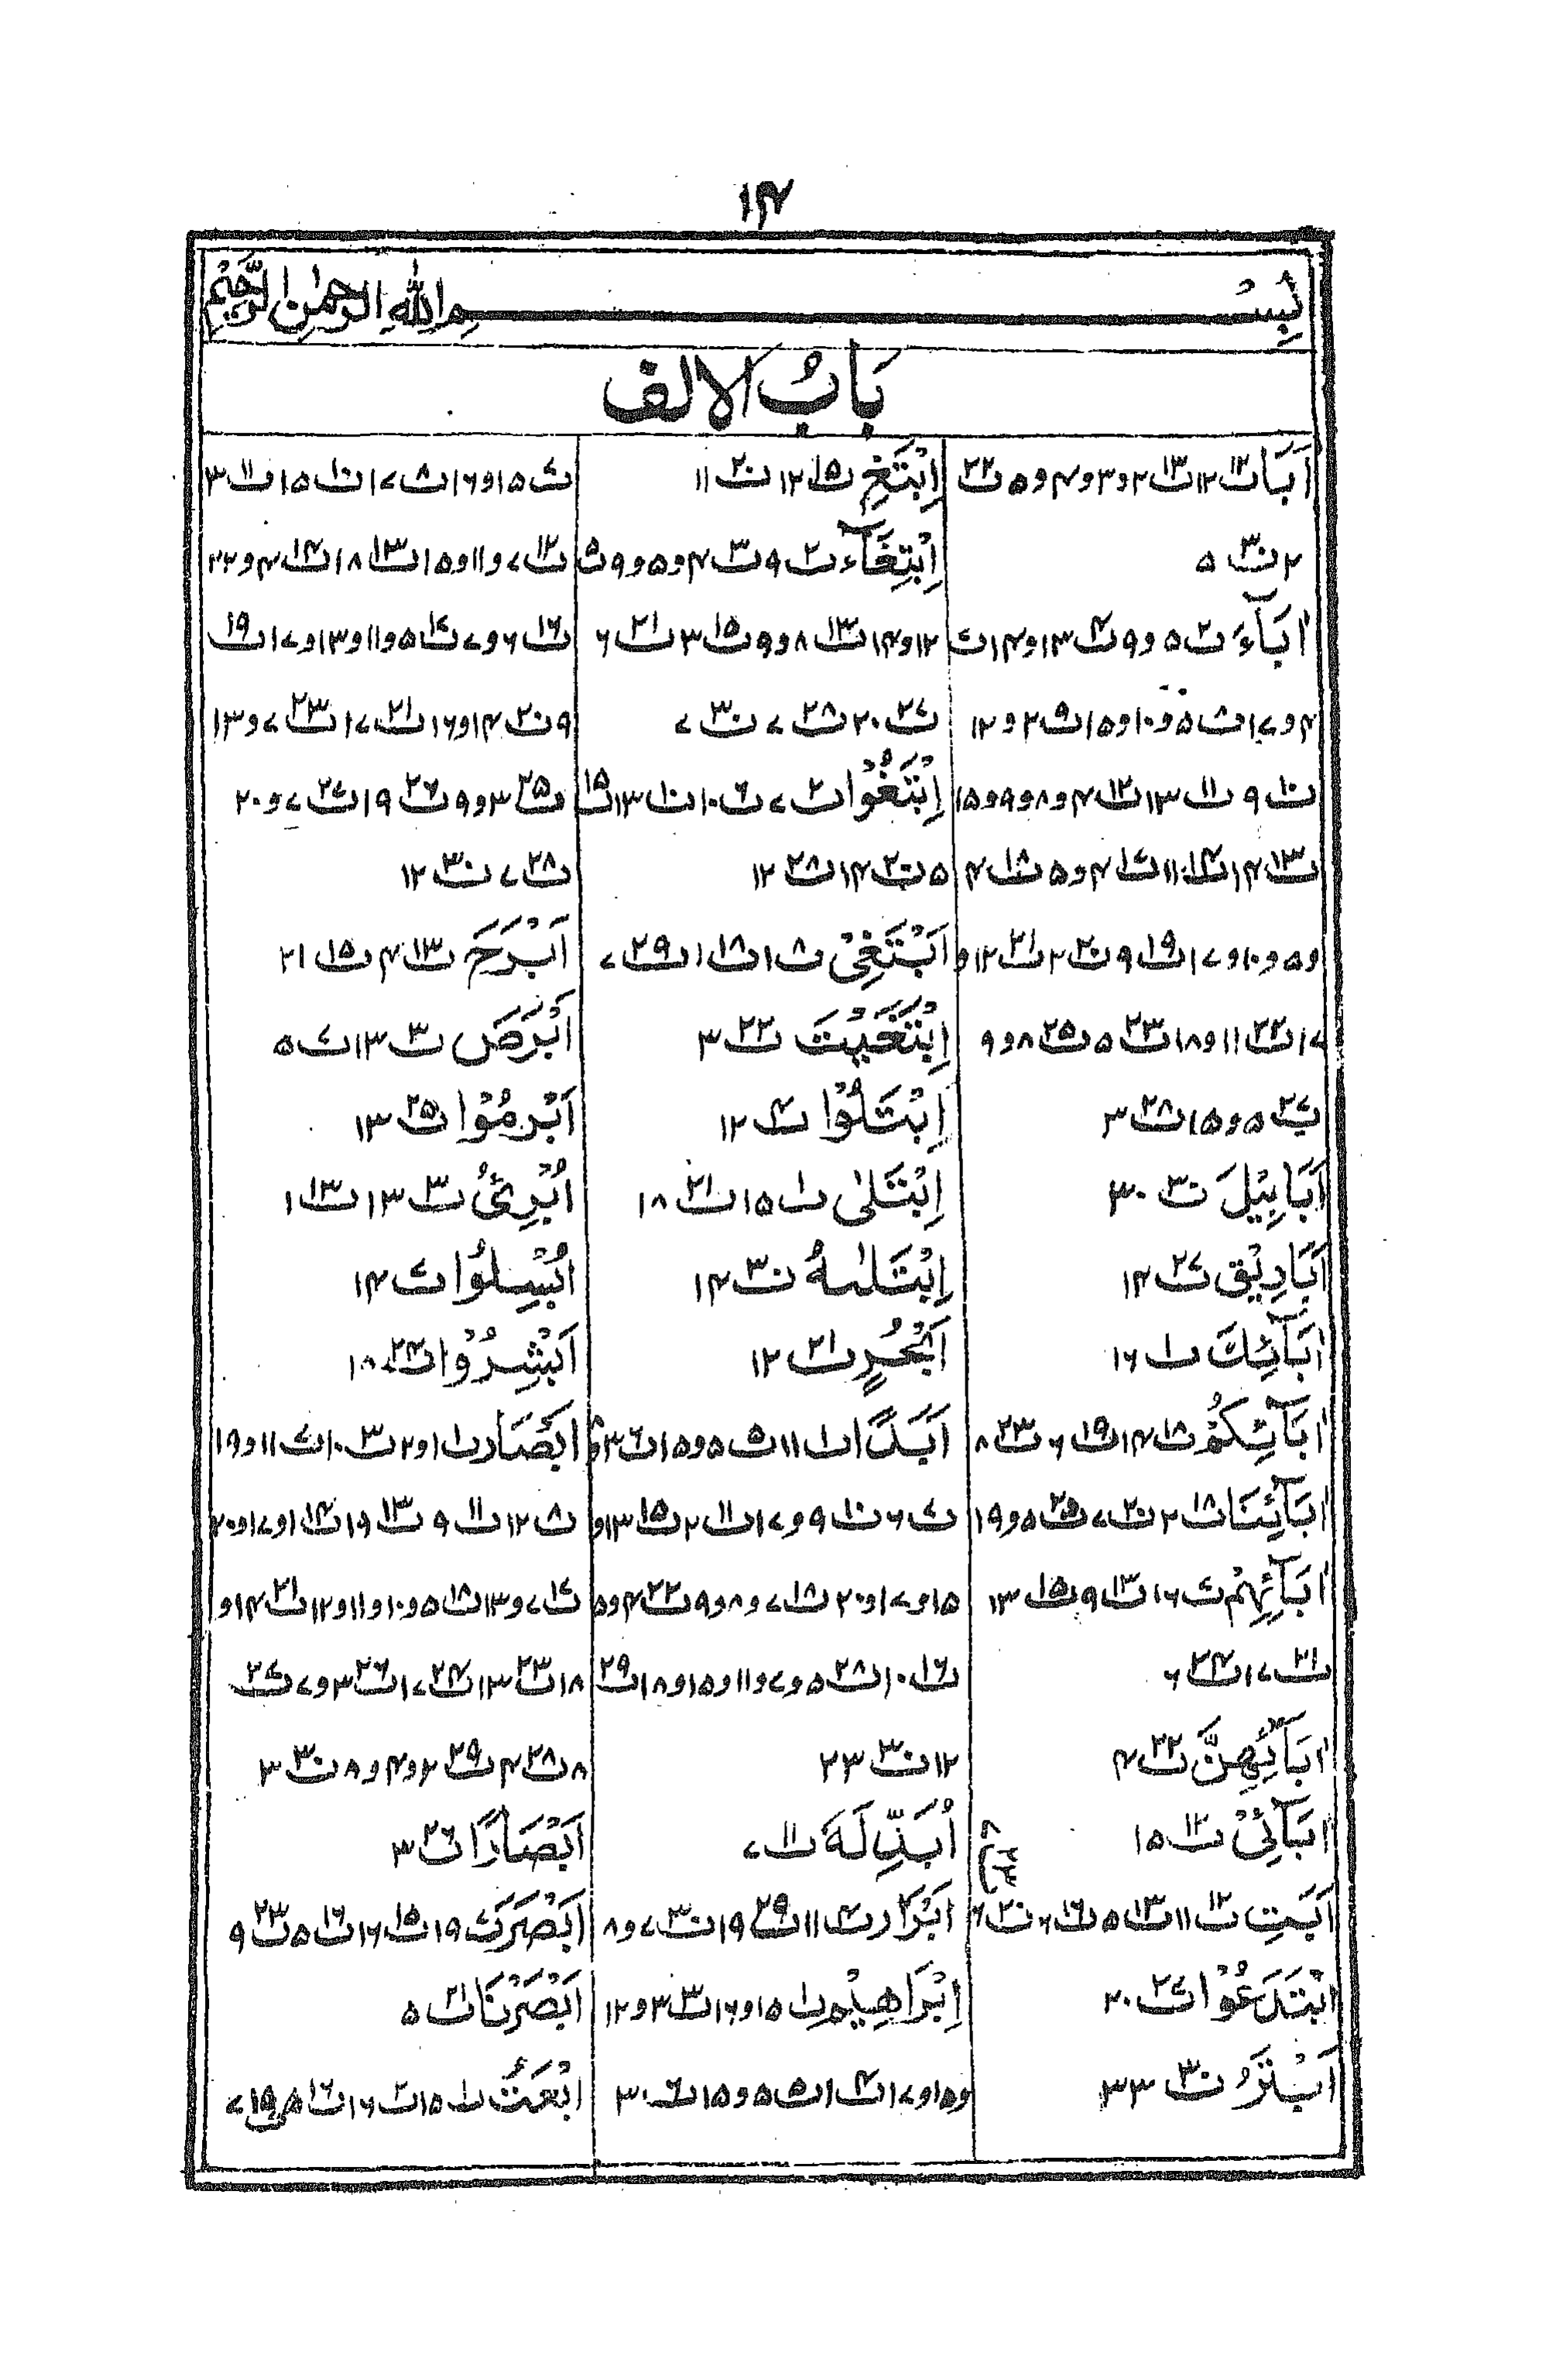 ۱۴
بِسْمِ اللهِ الرَّحْمٰنِ الرَّحِيْمِ
بَابُ الالف
اَبَا ت۱۲ ۱۲ ت۱۳ ۲و۳و۴و۵ ت۲۲
۲ ت۳۰ ۵
اٰبَآءَ ت۲ ۵و۹ ت۴ ۱۳و۱۴ ت۷
۴و۱۷ ت۸ ۵و۱۰و۱۵ ت۹ ۲و۱۲
ت۱۰ ۹ ت۱۱ ۱۳ ت۱۲ ۴و۸و۹و۱۵
ت۱۳ ۱۴ ت۱۴ ۱۱ ت۱۷ ۴و۵ ت۱۸ ۴
و۵و۱۰و۱۷ ت۱۹ ۹ ت۲۰ ۲ ت۲۱ ۱۲و
۱۷ ت۲۲ ۱۱و۱۸ ت۲۳ ۵ ت۲۵ ۸و۹
ت۲۷ ۵و۱۵ ت۲۸ ۳
اَبَابِيْلَ ت۳۰ ۳۰
اَبَارِيْق ت۲۷ ۱۴
اٰبَآئِكَ ت۱ ۱۶
اٰبَآئِكُمْ ت۱۸ ۱۴ ت۱۹ ۶ ت۲۳ ۸
اٰبَآئِنَا ت۱۸ ۲ ت۲۰ ۷ ت۲۵ ۵و۱۹
اٰبَآئِهِمْ ت۷ ۱۶ ت۱۳ ۹ ت۱۵ ۱۳
ت۲۱ ۱۷ ت۲۴ ۶
اٰبَآئِهِنَّ ت۲۲ ۴
اٰبَآئِیْ ت۱۲ ۱۵
اَبَتِ ت۱۲ ۱۱ ت۱۳ ۵ ت۱۶ ۶ ت۲۰ ۶ ت۲۳ ۸
ابْتَدَعُوْا ت۲۷ ۲۰
اَبْتَرُ ت۳۰ ۳۳
اِبْتَغِ ت۱۵ ۱۲ ت۲۰ ۱۱
اِبْتِغَآء ت۲ ۹ ت۳ ۴و۵و۹ ت۵
۱۲و۱۴ ت۱۳ ۸و۹ ت۱۵ ۳ ت۲۱ ۶
ت۲۷ ۲۰ ت۲۸ ۷ ت۳۰ ۷
اِبْتَغُوْا ت۲ ۷ ت۶ ۱۰ ت۱۰ ۱۳ ت۱۵
۵ ت۲۰ ۱۴ ت۲۸ ۱۲
اَبْتَغِیْ ت۸ ۱ ت۱۸ ۱ ت۲۹ ۷
اِبْتَغَيْتَ ت۲۲ ۳
اِبْتَلُوْا ت۴ ۱۲
اِبْتَلٰی ت۱ ۱۵ ت۲۱ ۱۸
اِبْتَلٰىهُ ت۳۰ ۱۴
اَبْحُرٍ ت۲۱ ۱۲
اَبَدًا ت۱ ۱۱ ت۵ ۵و۱۵ ت۶ ۳و۸
ت۷ ۶ ت۱۰ ۹و۱۷ ت۱۱ ۲ ت۱۵ ۱۳و
۱۵و۱۷و۲۰ ت۱۸ ۷و۸و۹ ت۲۲ ۴و۵
ت۱۶ ۱۰ ت۲۸ ۵و۷و۱۱و۱۵و۱۸ ت۲۹
۱۲ ت۳۰ ۲۳
اُبَدِّلَهٗ ت۱۱ ۷
اَبْرَار ت۴ ۱۱ ت۲۹ ۱۹ ت۳۰ ۷و۸
اِبْرَاهِيْم ت۱ ۱۵و۱۶ ت۳ ۳و۱۲
و۱۵و۱۷ ت۴ ۱ ت۵ ۵و۱۵ ت۶ ۳۰
ت۷ ۱۵و۱۶ ت۸ ۱۷ ت۱۰ ۱۵ ت۱۱ ۳
ت۱۲ ۷و۱۱و۱۵ ت۱۳ ۱۸ ت۱۴ ۴و۲۲
ت۱۶ ۶و۷ ت۱۷ ۵و۱۱و۱۳و۱۷ ت۱۹
۹ ت۲۰ ۱۴و۱۶ ت۲۱ ۱۷ ت۲۳ ۷و۱۳
ت۲۵ ۳و۹ ت۲۶ ۱۹ ت۲۷ ۷و۲۰
ت۲۸ ۷ ت۳۰ ۱۲
اَبْرَحَ ت۱۳ ۴ ت۱۵ ۲۱
اَبْرَصَ ت۳ ۱۳ ت۷ ۵
اَبْرَمُوْا ت۲۵ ۱۳
اُبْرِئُ ت۳ ۱۳ ت۱۳ ۱
اُبْسِلُوْا ت۷ ۱۴
اَبْشِرُوْا ت۲۴ ۱۸
اَبْصَار ت۱ ۱و۲ ت۳ ۱۰ ت۷ ۱۱و۱۹
ت۸ ۱۲ ت۱۱ ۹ ت۱۳ ۱۹ ت۱۴ ۱و۱۷و۲۰
ت۱۷ ۷و۱۳ ت۱۸ ۵و۱۰و۱۱و۱۲ ت۲۱ ۱۴و
۱۸ ت۲۳ ۱۳ ت۲۴ ۱۷ ت۲۶ ۳و۷ ت۲۷
۸ ت۲۸ ۴ ت۲۹ ۲و۴و۸ ت۳۰ ۳
اَبْصَارًا ت۲۶ ۳
اَبْصَرَ ت۷ ۱۹ ت۱۵ ۱۶ ت۱۶ ۵ ت۲۳ ۹
اَبْصَرْنَا ت۲۱ ۵
ابْعَثْ ت۱ ۱۵ ت۲ ۱۶ ت۱۶ ۵ ت۱۹ ۷